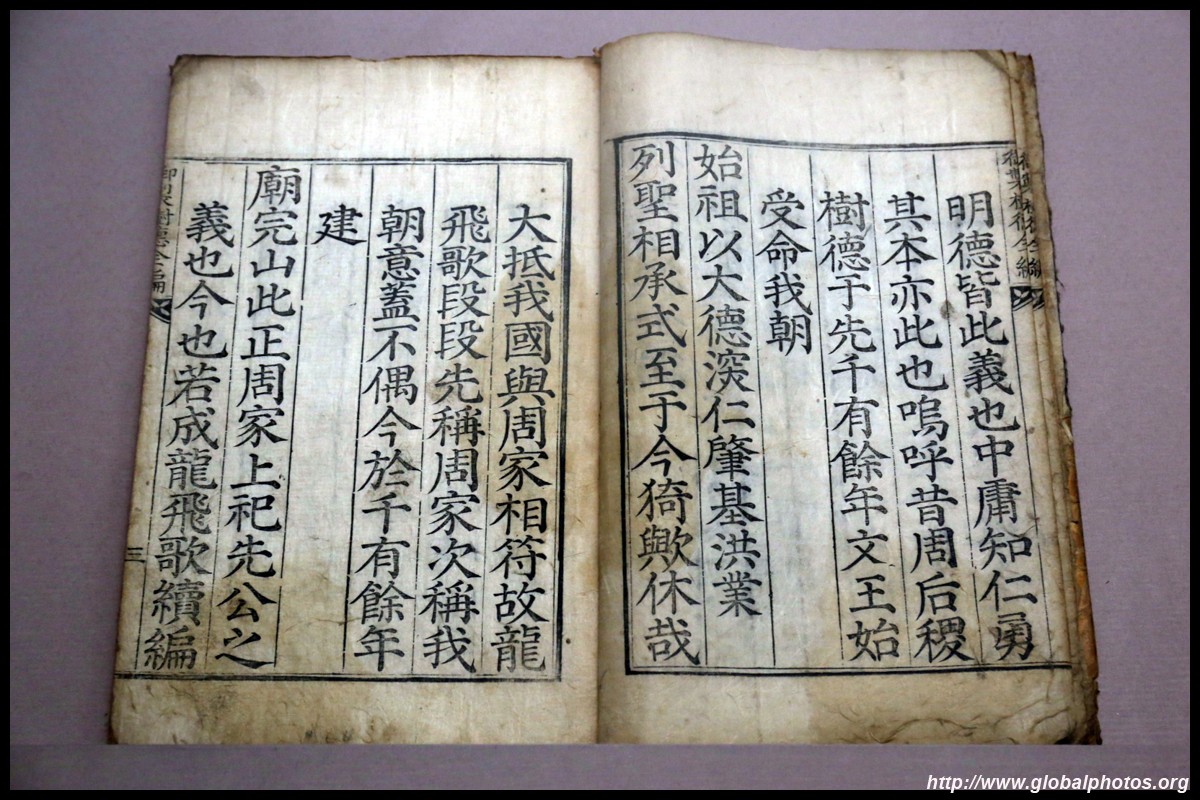 明德皆此義也中庸知仁勇
其本亦此也嗚呼昔周后稷
樹德于先千有餘年文王始
受命我朝
始祖以大德深仁肇基洪業
列聖相承式至于今猗歟休哉
大抵我國與周家相符故龍
飛歌段段先稱周家次稱我
朝意蓋不偶今於千有餘年
建
廟完山此正周家上祀先公之
義也今也若成龍飛歌續編
三
http://www.globalphotos.org